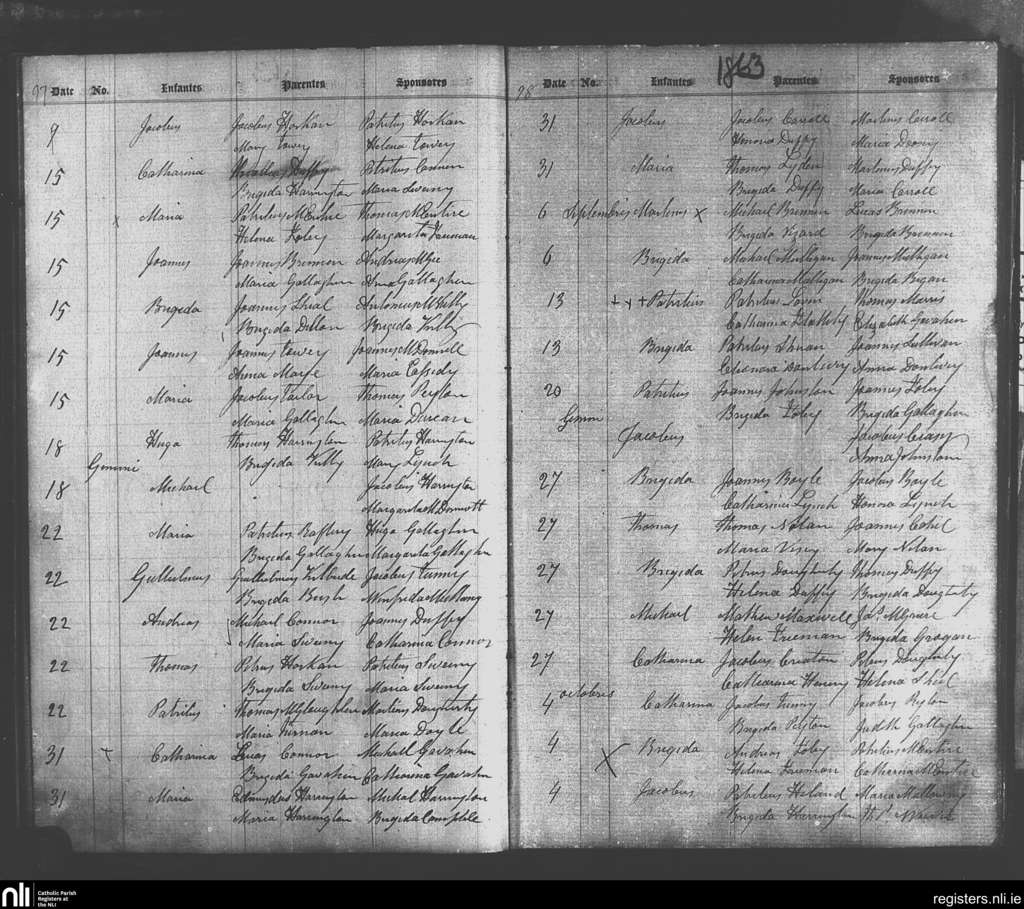 97 Date No. Infantes Parentes Sponsores
9 Jacobus Jacobus Horkan Patritius Horkan
Mary Towey Helena Towey
15 Catharina Duffy Patritius Connor
Brigida Harrington Maria Sweeny
15 x Maria Patritius McEntire Thomas McEntire
Helena Foley Margarita Heenan
15 Joannes Joannes Brennan Andrias McGee
Maria Gallagher Anna Gallagher
15 Brigida Joannes Sheal Antonius
Brigida Dillon Brigida Killy
15 Joannes Joannes Towey Joannes McDonnell
Anna Maria Cassidy
15 Maria Jacobus Tailor Thomas Peyton
Maria Gallagher Maria Durcan
18 Hugo Thomas Harrington Patritius Harington
Gemini Brigida Killy Mary Lynch
18 Michael Jacobus Harrington
Margarita McDermott
22 Maria Patritius Raftery Hugo Gallagher
Brigida Gallagher Margarita Gallagher
22 Gullielmus Gullielmus Kilbride Jacobus Tunny
Brigida
22 Andreas Michael Connor Joannes Duffy
Maria Sweeny Catharina Connor
22 Thomas Petrus Horkan Patritius Sweeny
Brigida Sweeny Maria Sweeny
22 Patritius Thomas McGloughlin Martinus Daugherty
Maria Kirnan Maria Doyle
31 + Catharina Lucas Connor Michael Gavahan
Brigida Gavahan Catharina Gavahan
31 Maria Edmundus Harrington Michael Harrington
Maria Harrington Brigida
1863
98 Date No. Infantes Parentes Sponsores
31 Jacobus Jacobus Carroll Martinus Carroll
Honoria Duffy Maria
31 Maria Thomas Lyden Martinus Duffy
Brigida Duffy Maria Carroll
6 Septembris Martinus x Michael Brennan Lucas Brennan
Brigida Brigida Brennan
6 Brigida Michael Mulligan Joannes Mulligan
Catharina Mulligan Brigida
13 + x + Patritius Patritius Thomas Morris
Catharina Flattely Elizabeth Gavahan
13 Brigida Patritius Joannes Sullivan
Eleonora Donlevey Anna Donlevey
20 Patritius Joannes Johnston Joannes Foley
Gemini Brigida Foley Brigida Gallagher
Jacobus Jacobus
Anna Johnston
27 Brigida Joannes Boyle Jacobus Boyle
Catharina Lynch Honora Lynch
27 Thomas Thomas Nolan Joannes
Maria Mary Nolan
27 Brigida Petrus Daugherty Thomas Duffy
Helena Duffy Brigida Daugherty
27 Michael Mathew Maxwell Jas.
Helen Freeman Brigida Grogan
27 Catharina Jacobus Creaton Petrus Daugherty
Catharina Helena Sheal
4 Octobris Catharina Jacobus Tunny Jacobus Peyton
Brigida Peyton Judith Gallagher
4 x Brigida Andreas Foley Patritius McEntire
Helena Freeman Catharina McEntire
4 Jacobus Patritius Hiland Maria
Brigida Harrington
nli Catholic Parish
Registers at
the NLI
registers.nli.ie